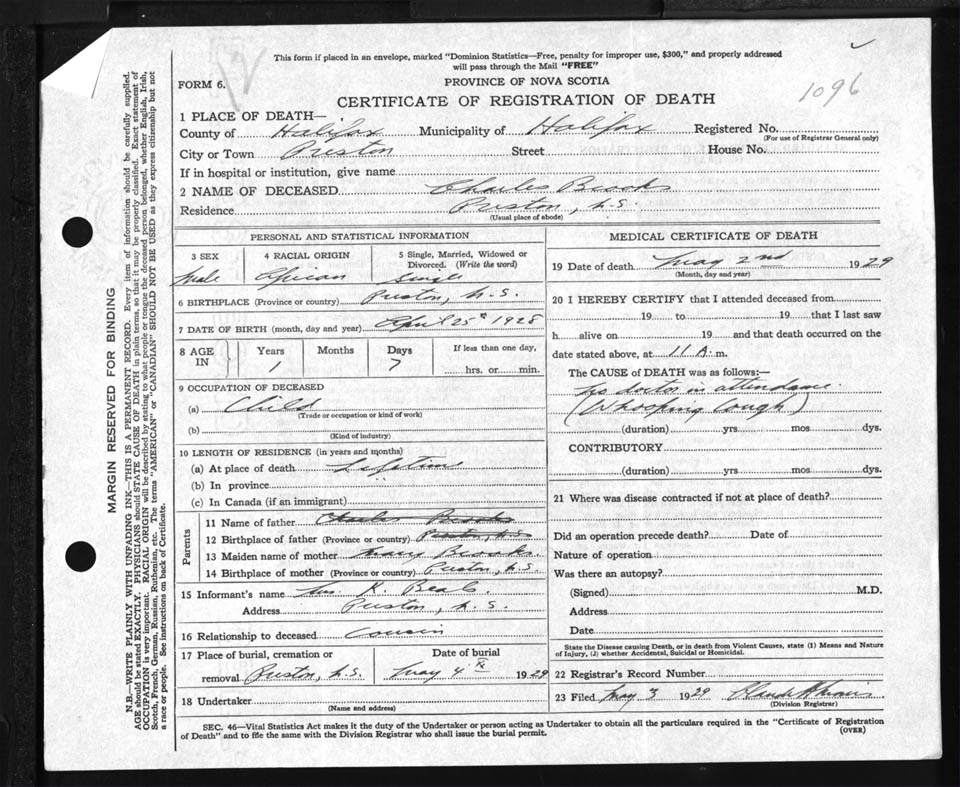 This form if placed in an envelope, marked "Dominion Statistics—Free, penalty for improper use, $300," and properly addressed
will pass through the Mail "FREE"
FORM 6.
PROVINCE OF NOVA SCOTIA
1096
CERTIFICATE OF REGISTRATION OF DEATH
1 PLACE OF DEATH—
County of Halifax Municipality of Halifax Registered No.
(For use of Registrar General only)
City or Town Preston Street House No.
If in hospital or institution, give name
2 NAME OF DECEASED Charles Brooks
Residence Preston, N.S.
(Usual place of abode)
PERSONAL AND STATISTICAL INFORMATION
3 SEX 4 RACIAL ORIGIN 5 Single, Married, Widowed or
Divorced. (Write the word)
Male African Single
6 BIRTHPLACE (Province or country) Preston, N.S.
7 DATE OF BIRTH (month, day and year) April 25th 1928
8 AGE IN Years Months Days If less than one day,
1 7 hrs. or min.
9 OCCUPATION OF DECEASED
(a) Child
(Trade or occupation or kind of work)
(b)
(Kind of industry)
10 LENGTH OF RESIDENCE (in years and months)
(a) At place of death Lifetime
(b) In province
(c) In Canada (if an immigrant)
Parents
11 Name of father Charles Brooks
12 Birthplace of father (Province or country) Preston, N.S.
13 Maiden name of mother Mary Brooks
14 Birthplace of mother (Province or country) Preston, N.S.
15 Informant's name Mrs. K. Beals
Address Preston, N.S.
16 Relationship to deceased Cousin
17 Place of burial, cremation or Date of burial
removal Preston, N.S. May 4th 1929
18 Undertaker
(Name and address)
MEDICAL CERTIFICATE OF DEATH
19 Date of death May 2nd 1929
(Month, day and year)
20 I HEREBY CERTIFY that I attended deceased from
19 to 19 that I last saw
h alive on 19 and that death occurred on the
date stated above, at 11 A. m.
The CAUSE of DEATH was as follows:—
No doctor in attendance.
(Whooping Cough)
(duration) yrs. mos. dys.
CONTRIBUTORY
(duration) yrs. mos. dys.
21 Where was disease contracted if not at place of death?
Did an operation precede death? Date of
Nature of operation
Was there an autopsy?
(Signed) M.D.
Address
Date
State the Disease causing Death, or in death from Violent Causes, state (1) Means and Nature
of Injury, (2) whether Accidental, Suicidal or Homicidal.
22 Registrar's Record Number
23 Filed May 3 1929
(Division Registrar)
SEC. 46—Vital Statistics Act makes it the duty of the Undertaker or person acting as Undertaker to obtain all the particulars required in the "Certificate of Registration
of Death" and to file the same with the Division Registrar who shall issue the burial permit.
(OVER)
MARGIN RESERVED FOR BINDING
N.B.—WRITE PLAINLY, WITH UNFADING INK—THIS IS A PERMANENT RECORD. Every item of information should be carefully supplied.
AGE should be stated EXACTLY. PHYSICIANS should STATE CAUSE OF DEATH in plain terms, so that it may be properly classified. Exact statement of
OCCUPATION is very important. RACIAL ORIGIN will be described by stating to what people or tongue the deceased person belonged, whether English, Irish,
Scotch, French, German, Russian, Ruthenian, etc. The terms "AMERICAN" or "CANADIAN" SHOULD NOT BE USED as they express citizenship but not
a race or people. See instructions on back of Certificate.